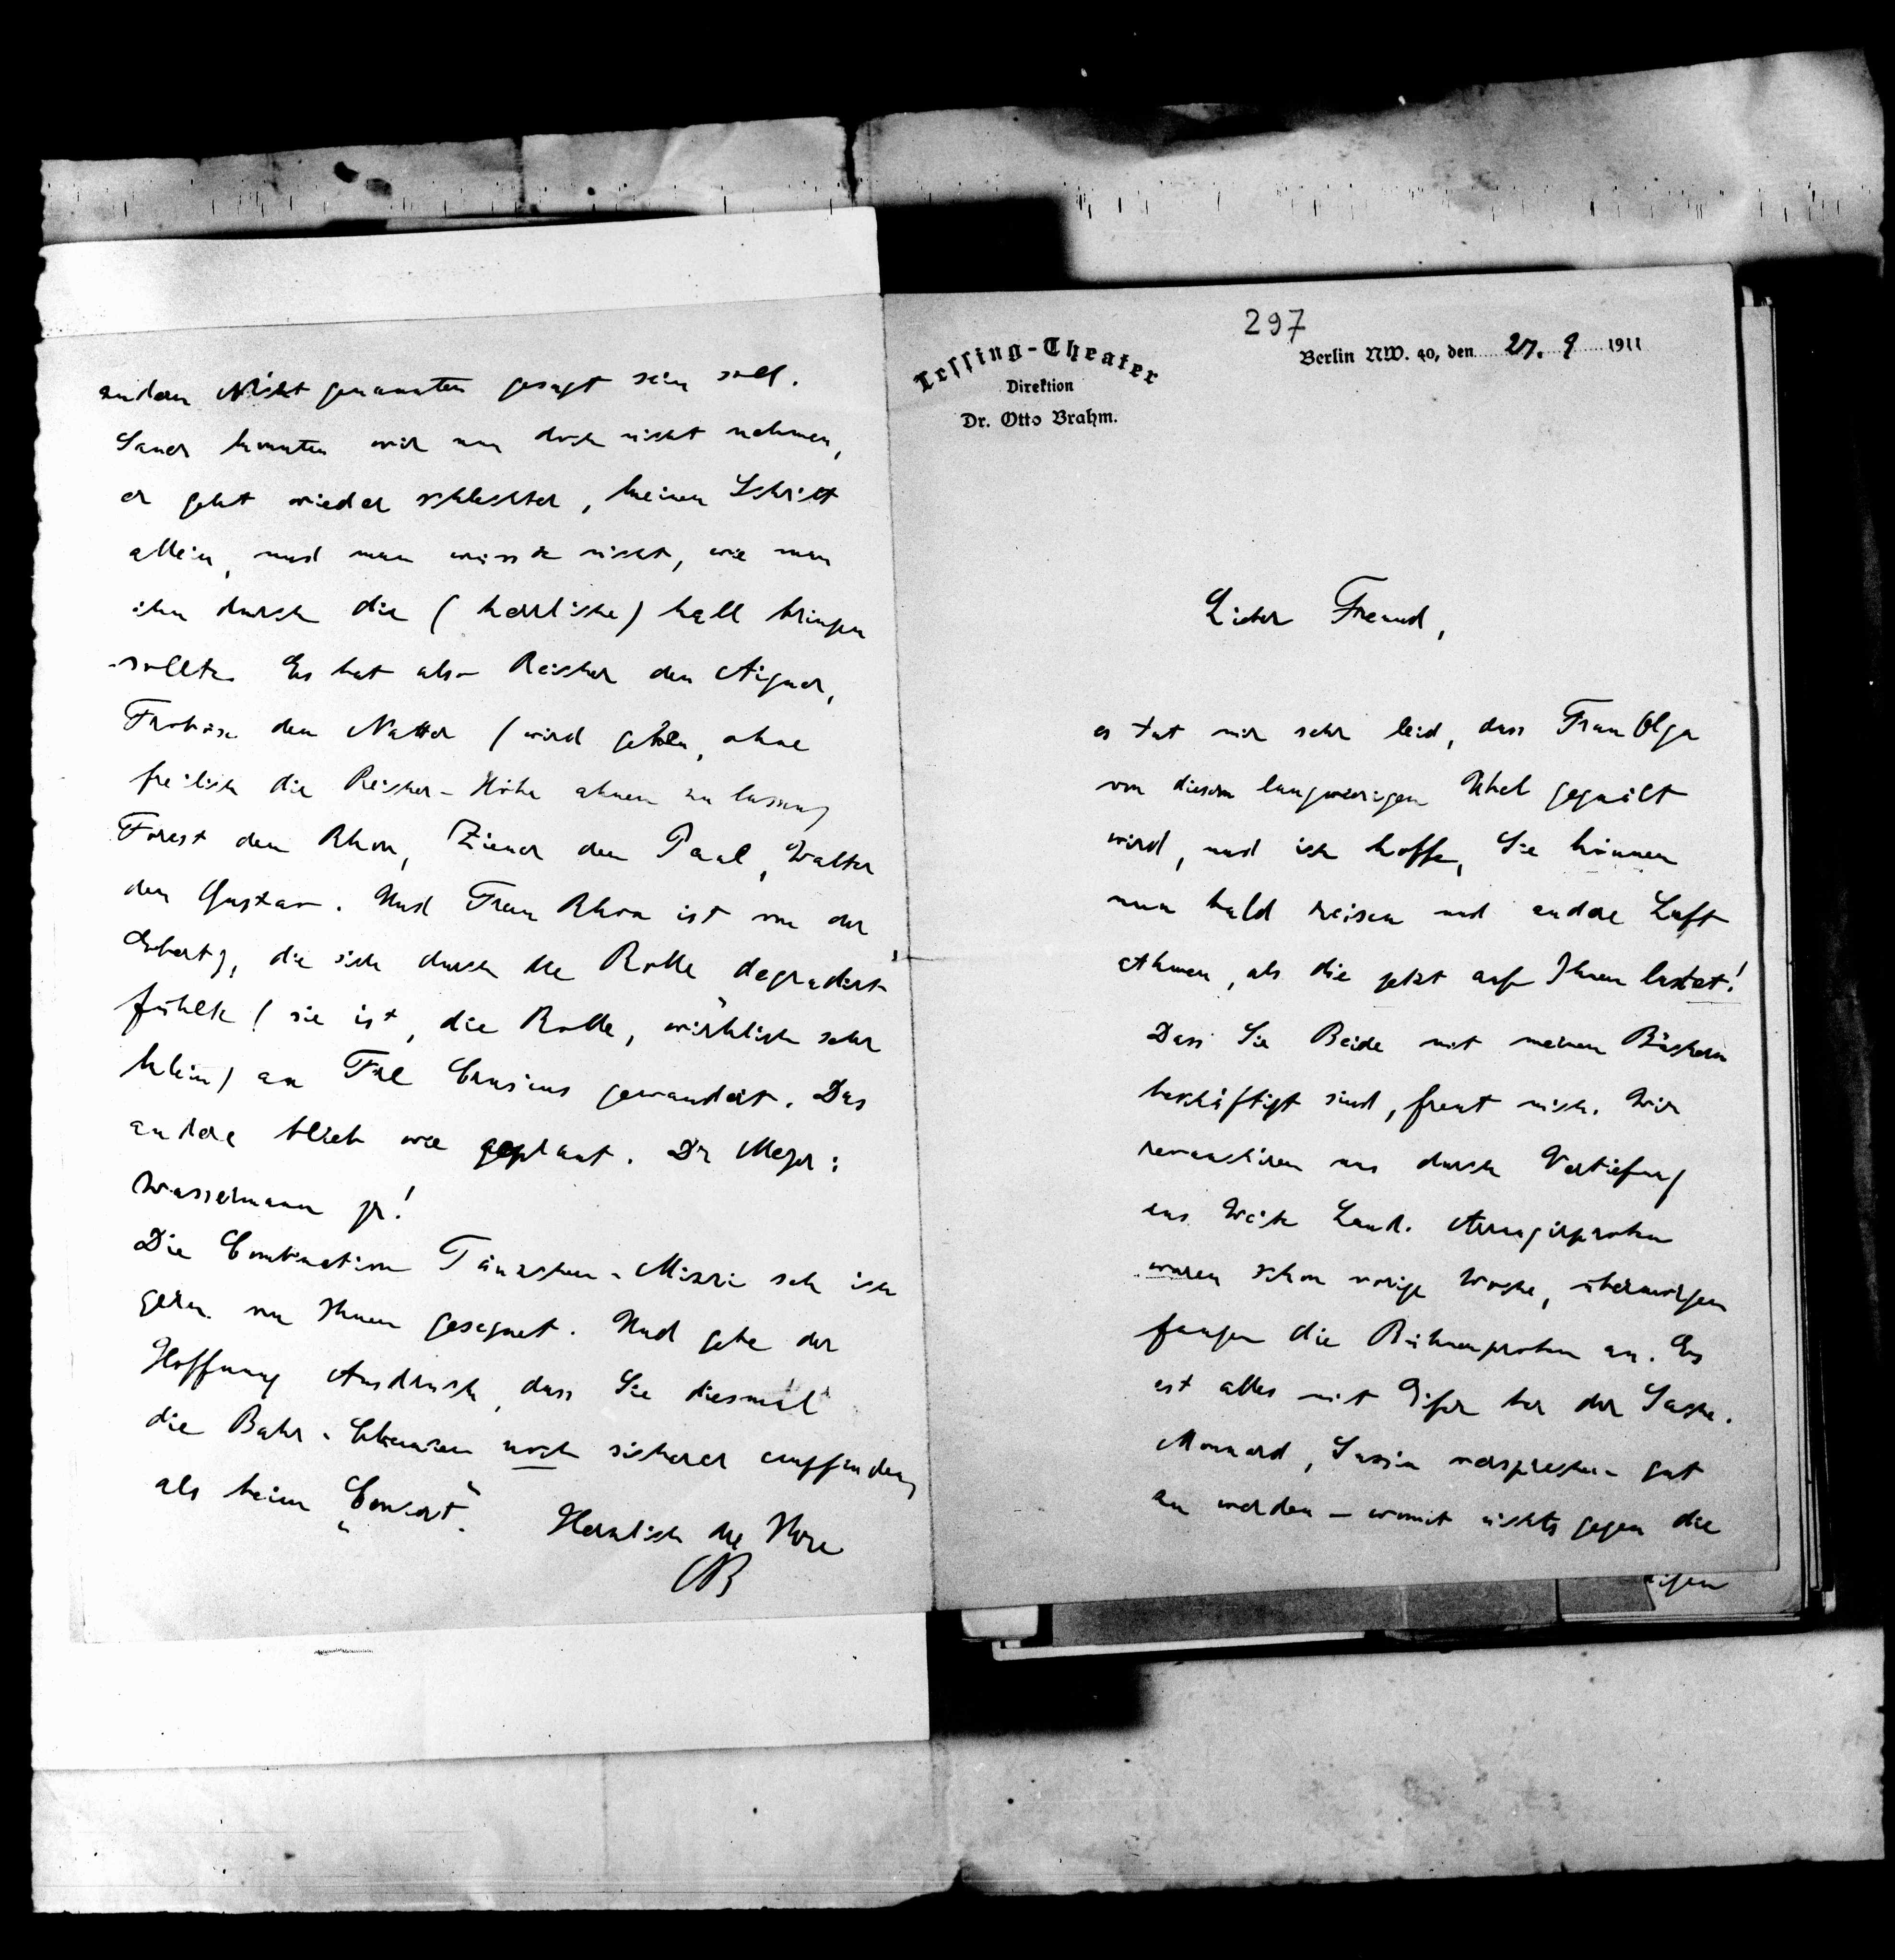 297
Lessing-Theater
Direktion
Dr. Otto Brahm.
Berlin NW. 40, den 27. 9 1911
Lieber Freund,
es tut mir sehr leid, dass Frau Olga
von diesem langwierigen Übel gequält
wird, und ich hoffe, Sie können
nun bald reisen und andre Luft
athmen, als die jetzt auf Ihnen lastet!
Dass Sie Beide mit meinen Büchern
beschäftigt sind, freut mich. Wir
revanchiren uns durch Vertiefung
ins Weite Land. Arrangirproben
waren schon vorige Woche, übermorgen
fangen die Bühnenproben an. Es
ist alles mit Eifer bei der Sache.
Monnard, Sussin versprechen gut
zu werden – womit nichts gegen die
andern Nicht genannten gesagt sein soll.
Sauer konnten wir nun doch nicht nehmen,
er geht wieder schlechter, keinen Schritt
allein, und man wüsste nicht, wie man
ihn durch die (herrliche) Hall bringen
sollte. Es hat also Reicher den Aigner,
Froböse den Natter (wird gehen, ohne
freilich die Reicher-Höhe ahnen zu lassen)
Forest den Rhon, Ziener den Paul, Walter
den Gustav. Und Frau Rhon ist von der
Ebertz, die sich durch die Rolle degradirt
fühlte (sie ist, die Rolle, wirklich sehr
klein) an Frl Crusius gewandert. Das
andere blieb wie geplant. Dr Meyer:
Wassermann jr!
Die Combination Tänzchen-Mizzi seh ich
gern von Ihnen gesegnet. Und gebe der
Hoffnung Ausdruck, dass Sie diesmal
die Bahr-Chancen noch sicherer empfinden,
als beim „Concert“. Herzlich der Ihre
OB